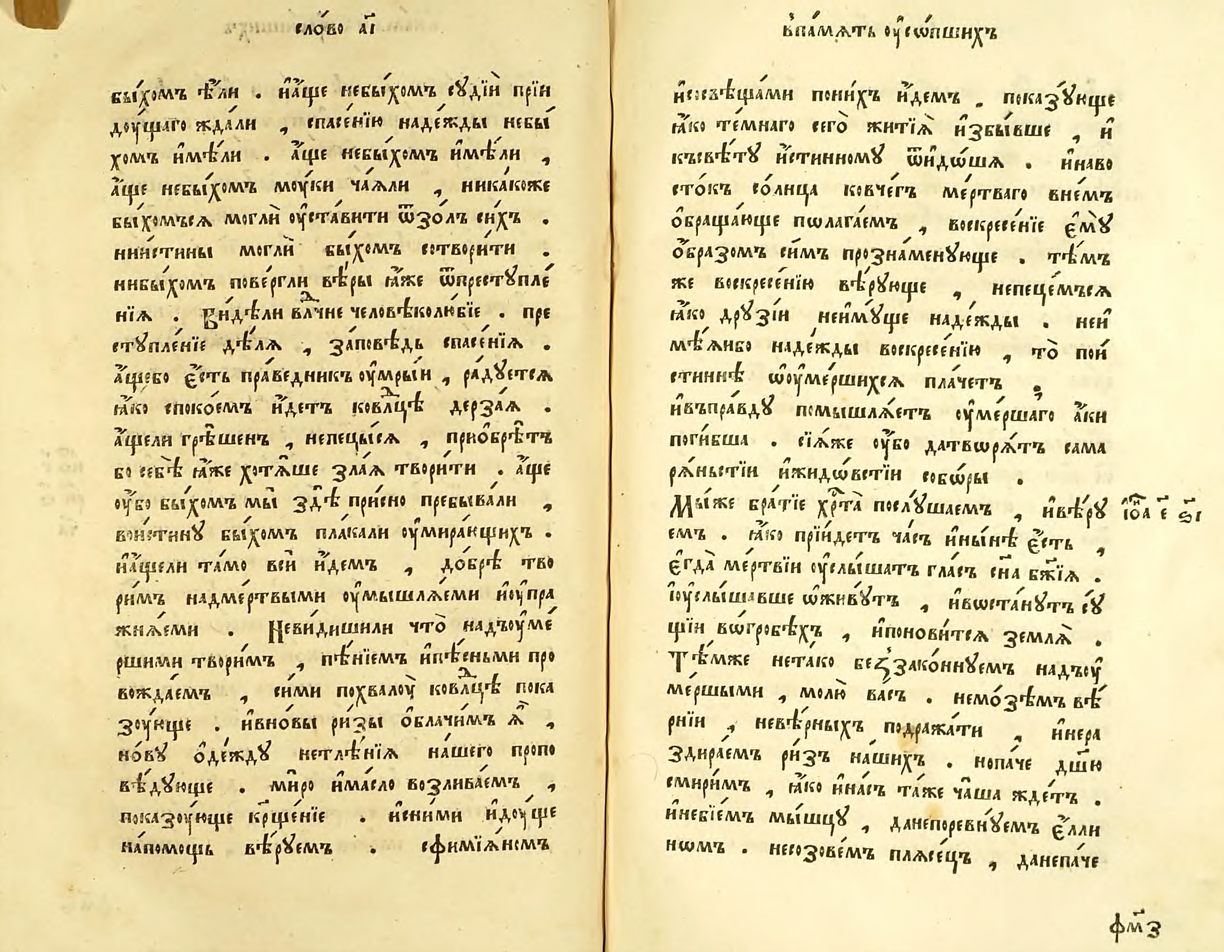 сло́во а҃і
бы́хомъ ѣ҆́ли . и҆а҆́ще небы́хомъ сꙋдїи̑ прїи
доу́щаго ждали , спасе́нїю наде́жды небы́
хомъ и҆мѣ́ли . а҆́ще небы́хомъ и҆мѣ́ли ,
а҆́ще небы́хомъ моу́ки ча́ѧли , ника́коже
бы́хомъсѧ могли̑ оу҆ста́вити ѿзо́лъ си́хъ .
нии҆́стины могли̑ бы́хомъ сотвори́ти .
нибы́хомъ пове́ргли вѣ́ры ꙗ҆́же ѿпрестꙋпле́
нїѧ . Ви́дѣли влⷣчне человѣколю́бїе . пре
стꙋпле́нїе дѣ́лѧ , за́повѣдь спасе́нїѧ .
а҆́щебо є҆́сть пра́ведникъ оу҆мрыи , ра́дꙋетсѧ
ꙗ҆́ко споко́емъ и҆́детъ ковлⷣцѣ дерза́ѧ .
а҆́щели грѣ́шенъ , непецы́сѧ , приѻбрѣ́тъ
бо себѣ̀ ꙗ҆́же хотѧ́ше зла́ѧ твори́ти . а҆́ще
оу҆́бо бы́хомъ мы̀ здѣ̀ при́сно пребывали ,
вои́стинꙋ бы́хомъ пла́кали оу҆мира́ющихъ .
и҆а҆́щели та́мо всѝ и҆́демъ , до́брѣ тво
ри́мъ надме́ртвыми оу҆мышлѧ́еми и҆оу҆пра
жнѧ́еми . Неви́дишили что̀ надъоу҆ме́
ршими твори́мъ , пѣ́нїемъ и҆пѣ́сньми про
вожда́емъ , си́ми похвалоу̀ ковлⷣцѣ пока
зоу́юще . и҆вно́вы ри́зы ѻ҆блачи́мъ ѧ҆̀ ,
но́вꙋ ѻ҆де́ждꙋ нетлѣ́нїѧ на́шего пропо
вѣ́дꙋюще . ми́ро и҆ма́сло возлива́емъ ,
показоу́юще кр҃ще́нїе . и҆сни́ми и҆дꙋ́ще
на́помощь вѣ́рꙋемъ . сѳимїѧ́номъ
в҆па́мѧть оу҆со́пшихъ
и҆сосвѣща́ми пони́хъ и҆́демъ . показꙋ́юще
ꙗ҆́ко те́мнаго сего̀ житїѧ̀ и҆збы́вше , и҆
късвѣ́тꙋ и҆́стинномꙋ ѿидѡ́шѧ . и҆наво
сто́къ со́лнца ковче́гъ ме́ртваго вне́мъ
ѻ҆браща́юще пѡлага́емъ , воскресе́нїе є҆мꙋ̀
ѻ҆́бразомъ си́мъ прозна́менꙋюще . тѣ́мъ
же воскресе́нїю вѣ́рꙋюще , непеце́мъсѧ
ꙗ҆́ко дрꙋзі́и неи҆мꙋ́ще наде́жды . неи҆
мѣ́ѧибо наде́жды воскресе́нїю , то̀ пои҆́
стиннѣ ѡ҆оу҆ме́ршихсѧ пла́четъ ,
и҆въпра́вдꙋ помышлѧ́етъ оу҆ме́ршаго а҆́ки
поги́бша . сїѧ́же оу҆́бо датворѧ́тъ сама
рѧ́ньстїи и҆жидо́встїи собо́ры .
Мы́же бра́тїе хрⷭ҇та̀ послꙋ́шаемъ , и҆вѣ́рꙋ
і҆ѡа҃ є҃ ѕ҃і
емъ . ꙗ҆́ко прїи́детъ ча́съ и҆ны́нѣ є҆́сть ,
є҆гда̀ ме́ртвїи оу҆слы́шатъ гла́съ сн҃а бж҃їѧ .
і҆оу҆слы́шавше ѡ҆живꙋ́тъ , и҆вѡста́нꙋтъ сꙋ́
щїи вѡгробѣ́хъ , и҆понови́тсѧ землѧ̀ .
Тѣ́мже нетако беззако́ннꙋемъ надъоу҆
ме́ршыми , молю̀ ва́съ . немо́зѣмъ вѣ́
рнїи , невѣ́рныхъ подража́ти , и҆нера
здира́емъ ри́зъ на́шихъ . нопа́че дш҃ю
смири́мъ , ꙗ҆́ко и҆на́съ та́же ча́ша жде́тъ .
и҆небїе́мъ мы́шцꙋ , данепоревнꙋ́емъ є҆́лли
нѡмъ . несозове́мъ плѧсе́цъ , данепа́че
фм҃з